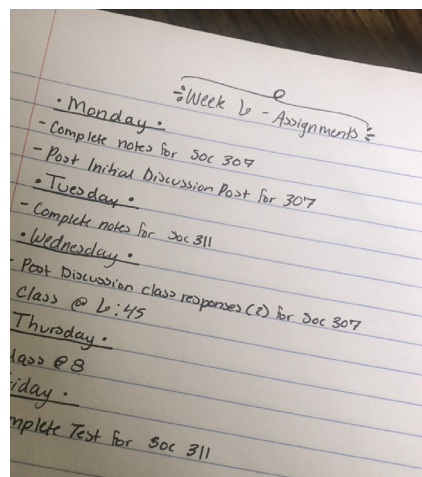 Week 6 - Assignments
• Monday •
- Complete notes for Soc 307
- Post Initial Discussion Post for 307
• Tuesday •
- Complete notes for Soc 311
• Wednesday •
- Post Discussion class responses (2) for Soc 307
Class @ 6:45
Thursday •
lass @ 8
iday •
mplete Test for Soc 311